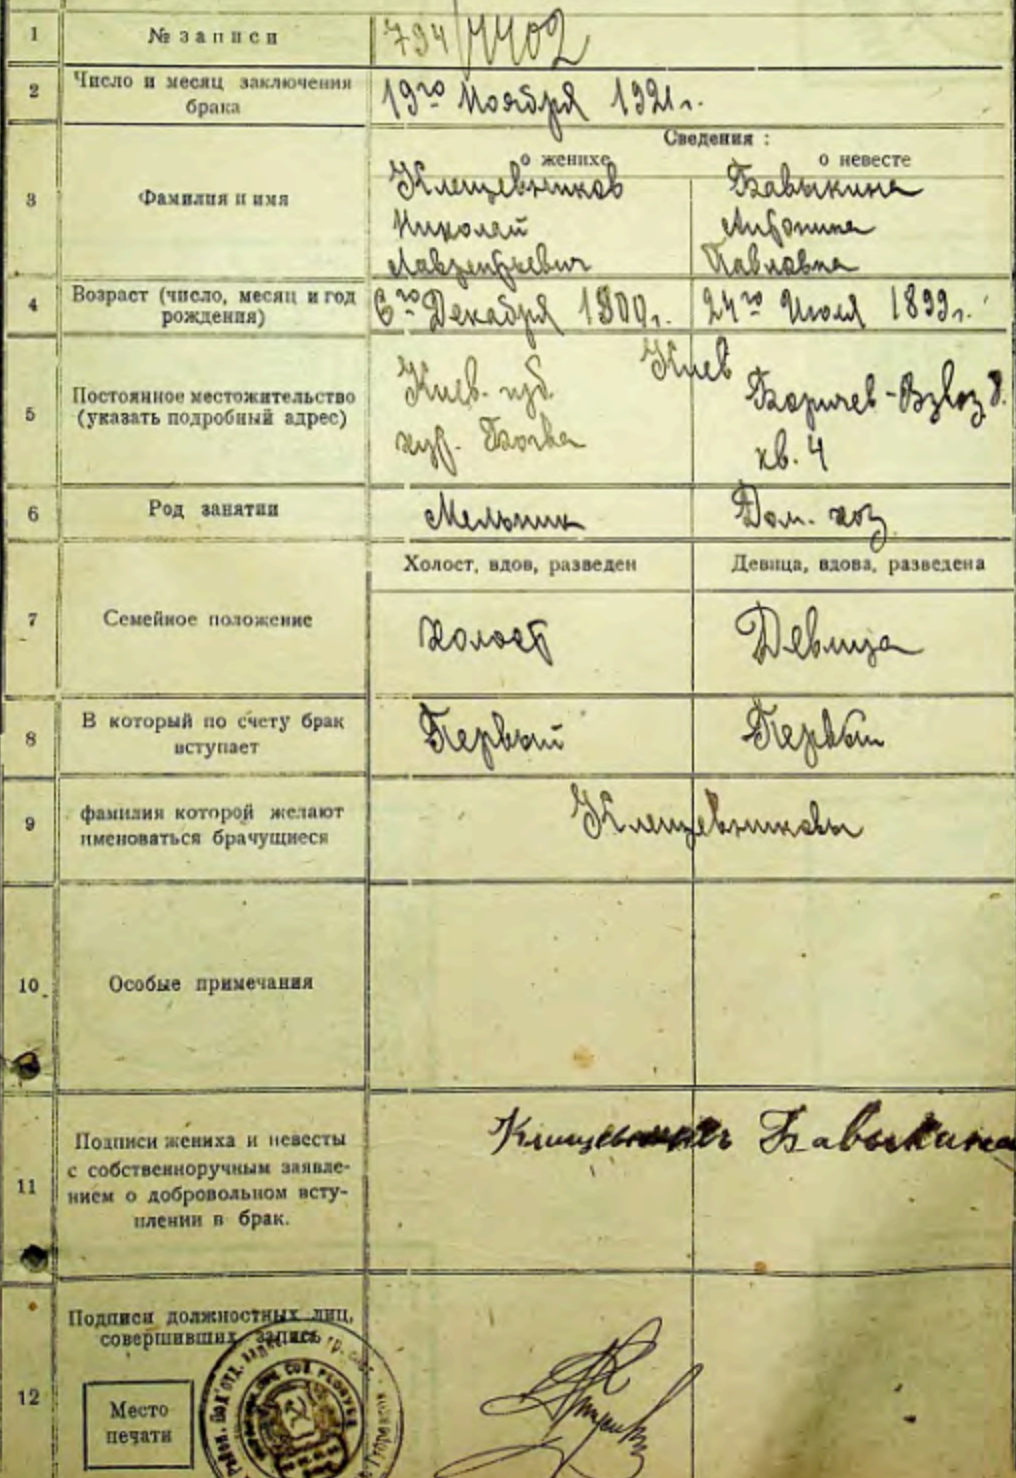 1 № записи 794/4402
2 Число и месяц заключения
брака
19го Ноября 1921г.
Сведения :
о женихе о невесте
3 Фамилия и имя
Клещевников Бавыкина
Николай Антонина
Лаврентьевич Павловна
4 Возраст (число, месяц и год
рождения)
6го Декабря 1899г. 24го Июля 1899г.
5 Постоянное местожительство
(указать подробный адрес)
Киев
Киев. губ. Боричев-Взвоз 8.
хут. кв. 4
6 Род занятии Мельник Дом. хоз.
Холост, вдов, разведен Девица, вдова, разведена
7 Семейное положение холост Девица
8 В который по счету брак
вступает
Первый Первый
9 фамилия которой желают
именоваться брачущиеся
Клещевниковы
10 Особые примечания
11 Подписи жениха и невесты
с собственноручным заявле-
нием о добровольном всту-
плении в брак.
Бавыкина
12 Подписи должностных лиц,
совершивших запись
Место
печати